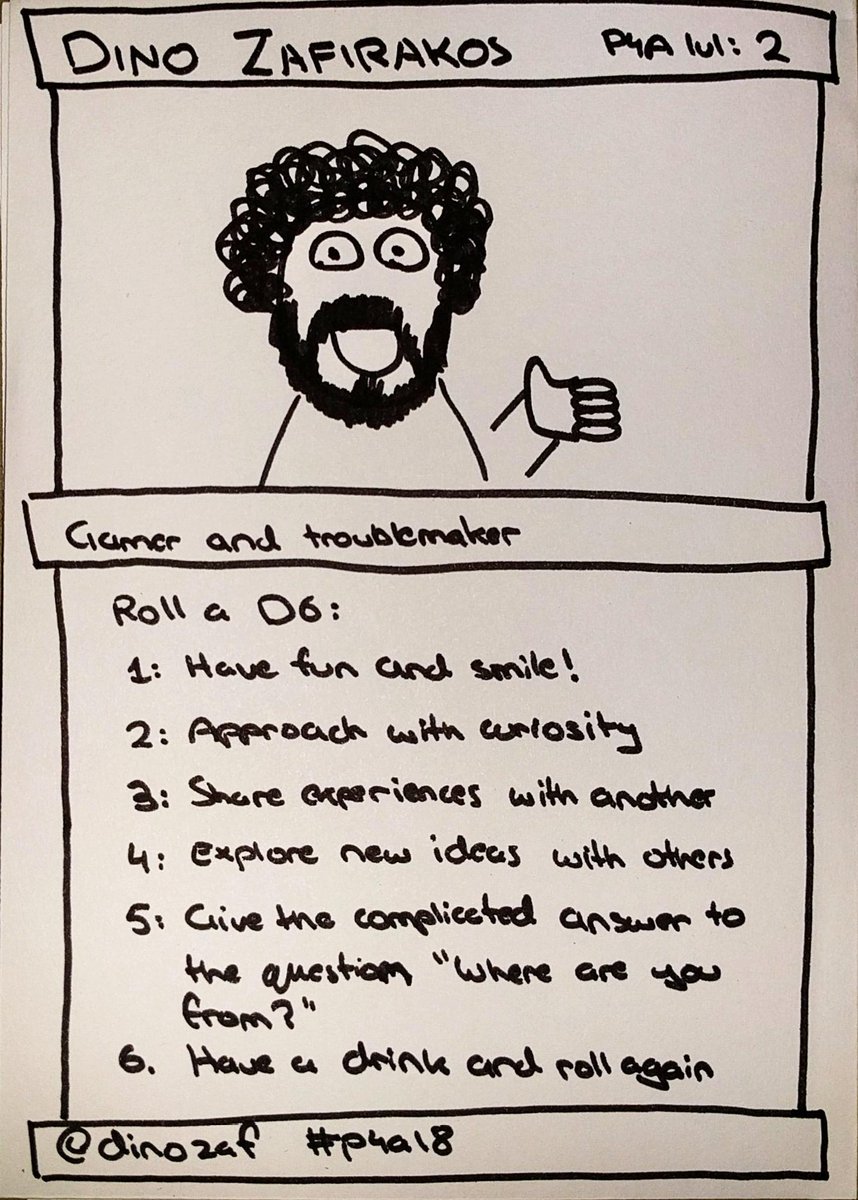 DINO ZAFIRAKOS P4A lvl: 2
Gamer and troublemaker
Roll a D6:
1: Have fun and smile!
2: Approach with curiosity
3: Share experiences with another
4: Explore new ideas with others
5: Give the complicated answer to
the question "Where are you
from?"
6. Have a drink and roll again
@dinozaf #p4a18